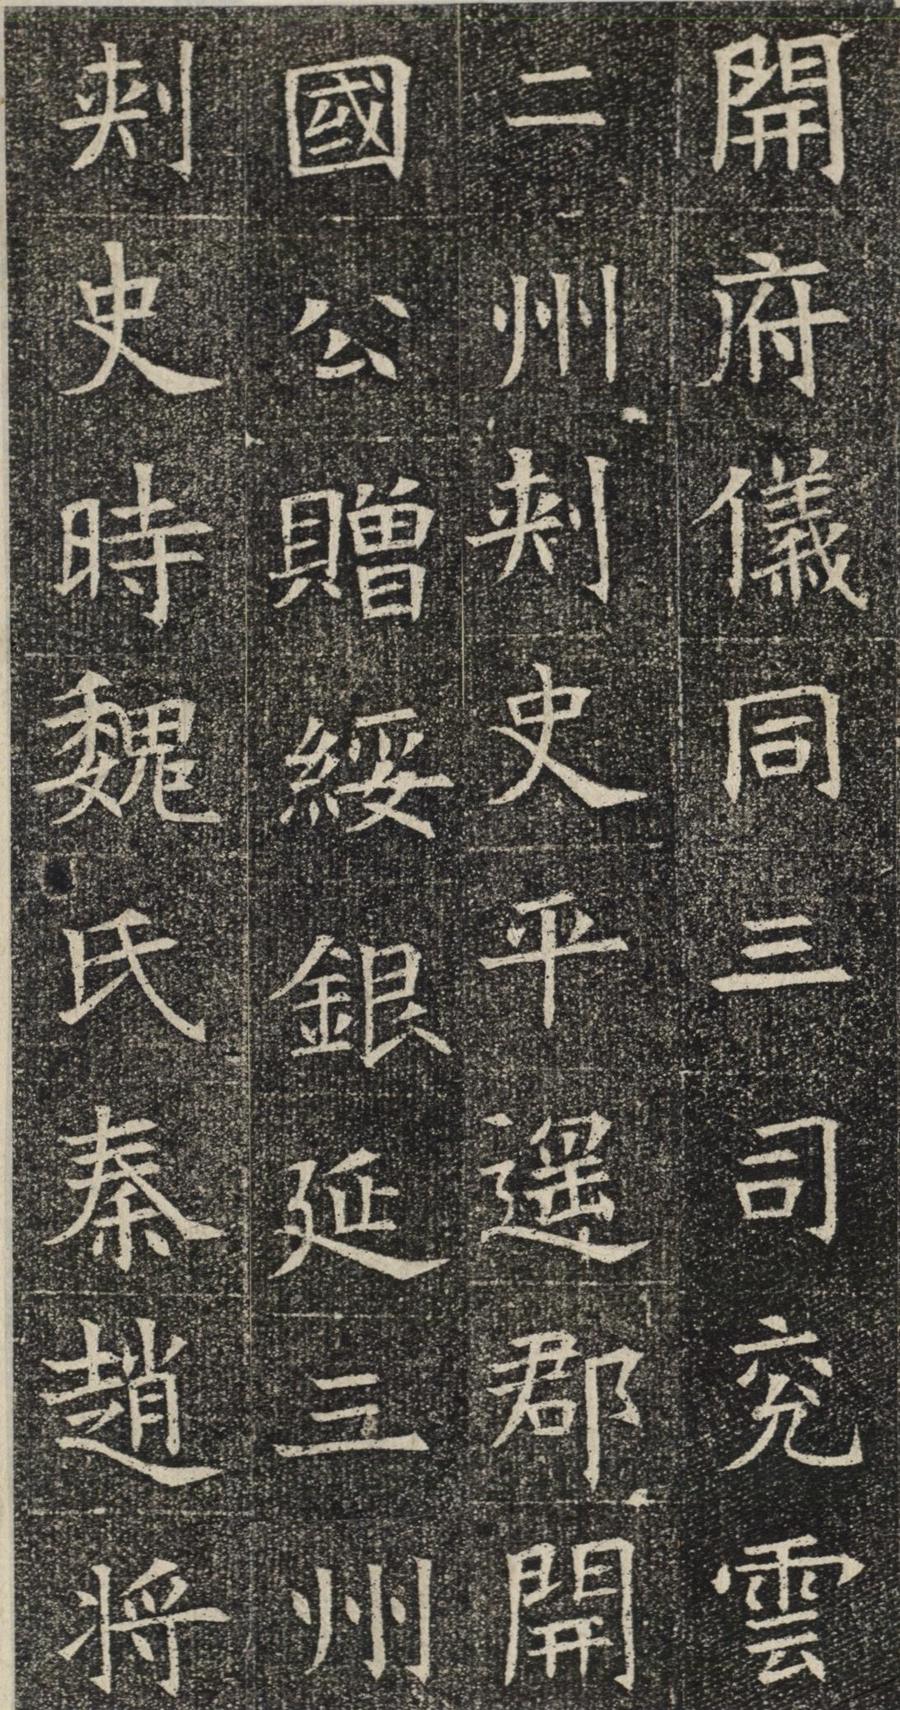 開府儀同三司兖雲
二州刾史平遥郡開
國公贈綏銀延三州
刾史時魏氏秦趙将